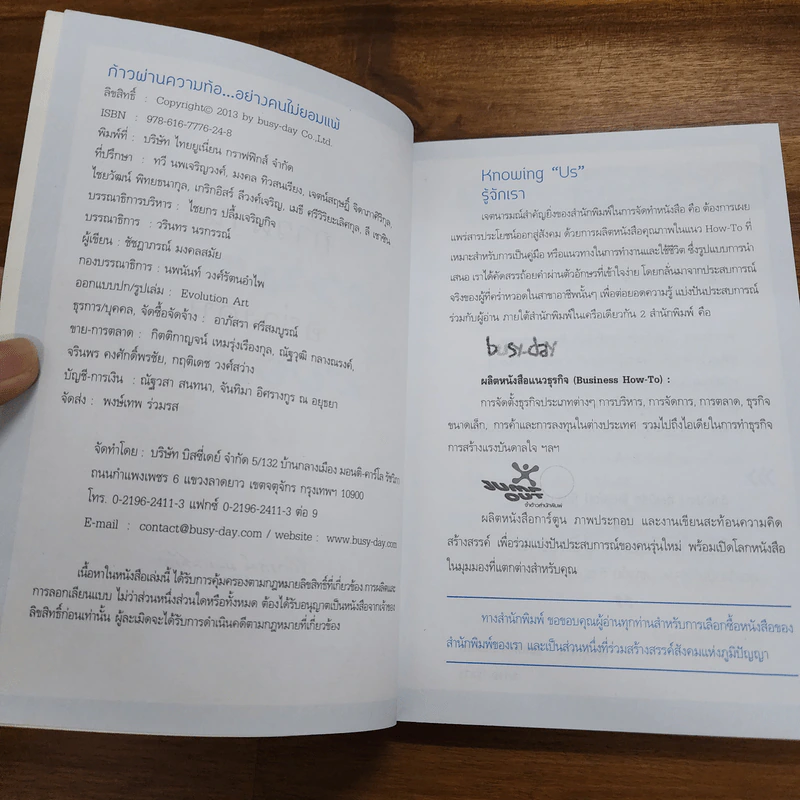 ก้าวผ่านความท้อ...อย่างคนไม่ยอมแพ้
ลิขสิทธิ์ : Copyright© 2013 by busy-day Co.,Ltd.
ISBN : 978-616-7776-24-8
พิมพ์ที่ : บริษัท ไทยยูเนี่ยน กราฟฟิกส์ จำกัด
ที่ปรึกษา : ทวี นพเจริญวงศ์, มงคล ทิวสนเรียง, เจตน์สฤษฎิ์ จิดาภาศิริกุล,
ไชยวัฒน์ พิทยธนากุล, เกริกอิสร์ ลีวงศ์เจริญ, เมธี ศรีวิริยะเลิศกุล, ลี เซาชิน
บรรณาธิการบริหาร : ไชยกร ปลื้มเจริญกิจ
บรรณาธิการ : วรินทร นรกรรณ์
ผู้เขียน : ชัชฎาภรณ์ มงคลสมัย
กองบรรณาธิการ : นพนันท์ วงศ์รัตนอำไพ
ออกแบบปก/รูปเล่ม : Evolution Art
ธุรการ/บุคคล, จัดซื้อจัดจ้าง : อาภัสรา ศรีสมบูรณ์
ขาย-การตลาด : กิตติกาญจน์ เหมรุ่งเรืองกุล, ณัฐวุฒิ กลางณรงค์,
จรินพร คงศักดิ์พรชัย, กฤติเดช วงศ์สว่าง
บัญชี-การเงิน : ณัฐวสา สนทนา, จันทิมา อิศรางกูร ณ อยุธยา
จัดส่ง : พงษ์เทพ ร่วมรส
จัดทำโดย : บริษัท บิสซี่เดย์ จำกัด 5/132 บ้านกลางเมือง มอนติ-คาร์โล
ถนนกำแพงเพชร 6 แขวงลาดยาว เขตจตุจักร กรุงเทพฯ 10900
โทร. 0-2196-2411-3 แฟกซ์ 0-2196-2411-3 ต่อ 9
E-mail : contact@busy-day.com / website : www.busy-day.com
เนื้อหาในหนังสือเล่มนี้ ได้รับการคุ้มครองตามกฎหมายลิขสิทธิ์ที่เกี่ยวข้อง การผลิตและ
การลอกเลียนแบบ ไม่ว่าส่วนหนึ่งส่วนใดหรือทั้งหมด ต้องได้รับอนุญาตเป็นหนังสือจากเจ้าของ
ลิขสิทธิ์ก่อนเท่านั้น ผู้ละเมิดจะได้รับการดำเนินคดีตามกฎหมายที่เกี่ยวข้อง
Knowing "Us"
รู้จักเรา
เจตนารมณ์สำคัญยิ่งของสำนักพิมพ์ในการจัดทำหนังสือ คือ ต้องการเผย
แพร่สาระประโยชน์ออกสู่สังคม ด้วยการผลิตหนังสือคุณภาพในแนว How-To ที่
เหมาะสำหรับการเป็นคู่มือ หรือแนวทางในการทำงานและใช้ชีวิต ซึ่งรูปแบบการนำ
เสนอ เราได้คัดสรรถ้อยคำผ่านตัวอักษรที่เข้าใจง่าย โดยกลั่นมาจากประสบการณ์
จริงของผู้ที่คร่ำหวอดในสาขาอาชีพนั้นๆ เพื่อต่อยอดความรู้ แบ่งปันประสบการณ์
ร่วมกับผู้อ่าน ภายใต้สำนักพิมพ์ในเครือเดียวกัน 2 สำนักพิมพ์ คือ
busy-day
ผลิตหนังสือแนวธุรกิจ (Business How-To) :
การจัดตั้งธุรกิจประเภทต่างๆ การบริหาร, การจัดการ, การตลาด, ธุรกิจ
ขนาดเล็ก, การค้าและการลงทุนในต่างประเทศ รวมไปถึงไอเดียในการทำธุรกิจ
การสร้างแรงบันดาลใจ ฯลฯ
JUMP
OUT
ผลิตหนังสือการ์ตูน ภาพประกอบ และงานเขียนสะท้อนความคิด
สร้างสรรค์ เพื่อร่วมแบ่งปันประสบการณ์ของคนรุ่นใหม่ พร้อมเปิดโลกหนังสือ
ในมุมมองที่แตกต่างสำหรับคุณ
ทางสำนักพิมพ์ ขอขอบคุณผู้อ่านทุกท่านสำหรับการเลือกซื้อหนังสือของ
สำนักพิมพ์ของเรา และเป็นส่วนหนึ่งที่ร่วมสร้างสรรค์สังคมแห่งภูมิปัญญา